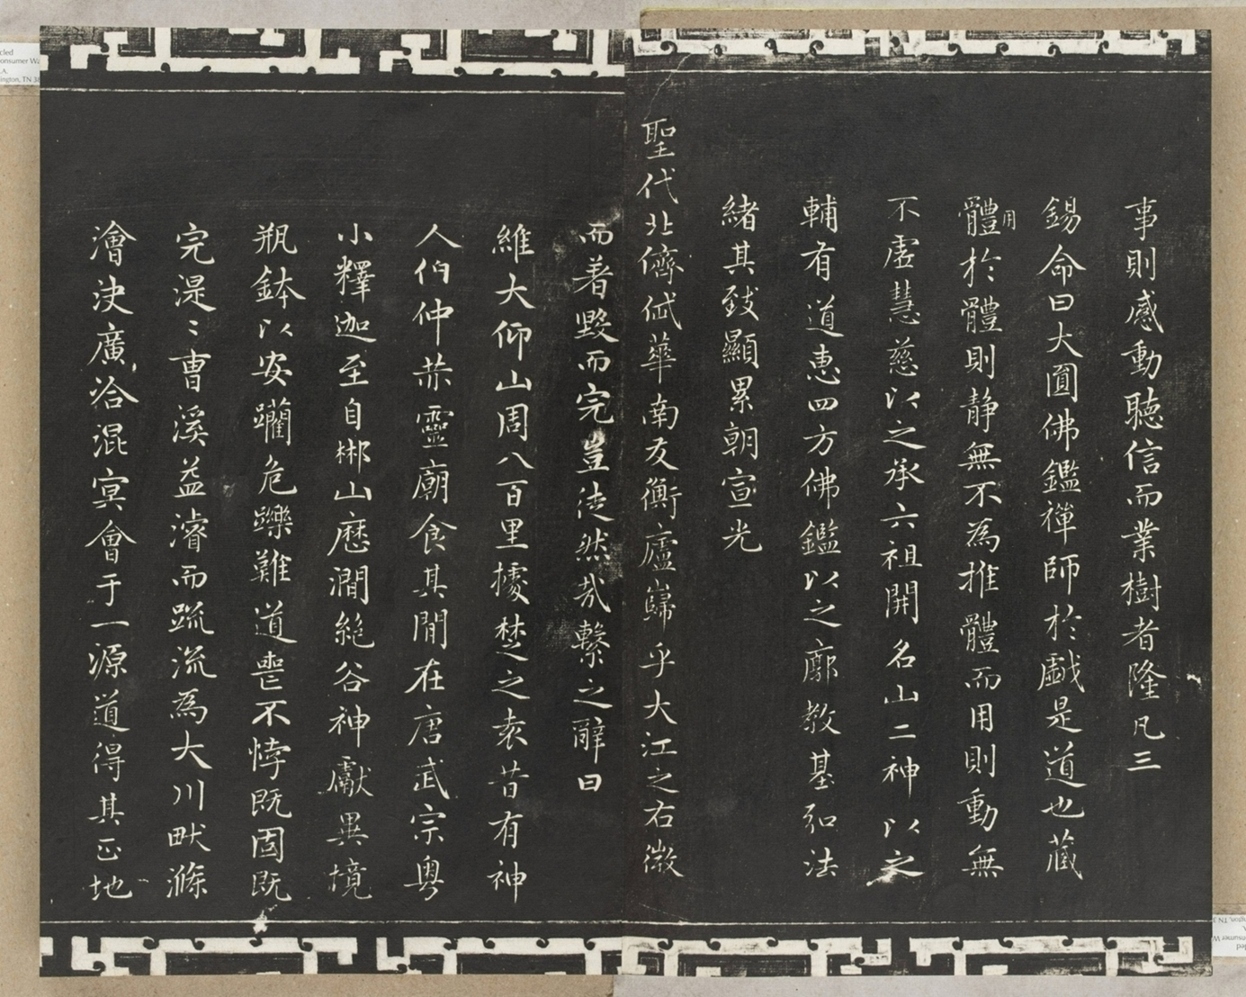 事則感動聴信而業樹者隆凡三
錫命曰大圓佛鑑禅師於戱是道也蔵
體用於體則静無不為推體而用則動無
不虗慧慈以之承六祖開名山二神以之
輔有道恵四方佛鑑以之廓教基弘法
緒其致顯累朝宣光
聖代北儕華南友衡廬巋乎大江之右徴
而著毀而完豈徒然哉繫之辭曰
維大仰山周八百里據楚之表昔有神
人伯仲恭靈廟食其間在唐武宗粤
小釋迦至自郴山歴澗絶谷神獻異境
瓶鉢以安躪危躒難道喪不悖既固既
完湜〻曺溪益濬而䟽流為大川畎滌
澮决廣洽混㝠會于一源道得其正地
cled
onsumer Wa
A.
ington, TN 3